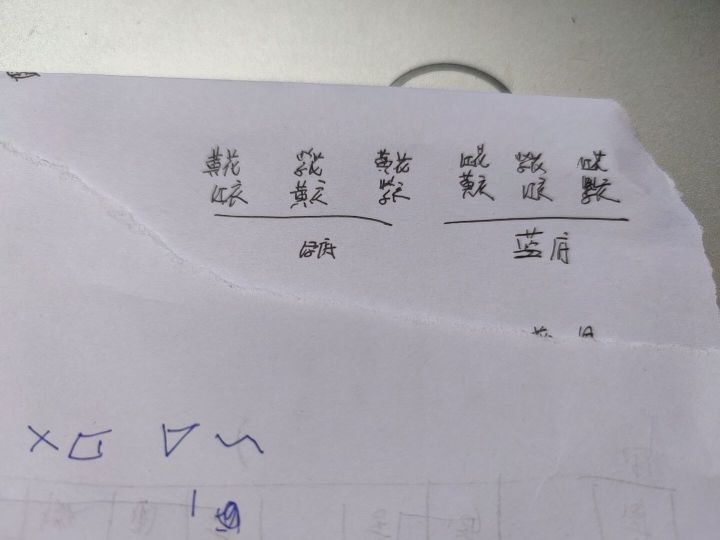 黄花 紫花 黄花 红花 紫花 红花
红衣 黄衣 紫衣 黄衣 红衣 紫衣
绿底 蓝底